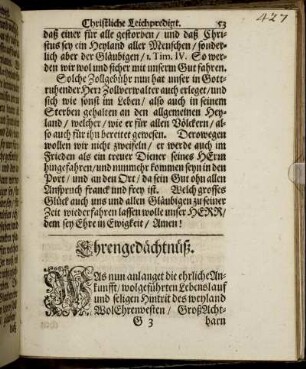 Christliche Leichpredigt. 53
427
daß einer für alle gestorben / und daß Chri-
stus sey ein Heyland aller Menschen / sonder-
lich aber der Gläubigen / 1. Tim. IV. So wer-
den wir wol und sicher mit unserm Gut fahren.
Solche Zollgebühr nun hat unser in Gott-
ruhender Herr Zollverwalter auch erleget / und
sich wie sonst im Leben / also auch in seinem
Sterben gehalten an den allgemeinen Hey-
land / welcher / wie er für allen Völckern / al-
so auch für ihn bereitet gewesen. Derowegen
wollen wir nicht zweifeln / er werde auch im
Frieden als ein treuer Diener seines HErrn
hingefahren / und nunmehr kommen seyn in den
Port / und an den Ort / da sein Gut ohn allen
Anspruch franck und frey ist. Welch grosses
Glück auch uns und allen Gläubigen zu seiner
Zeit wiederfahren lassen wolle unser HERR /
dem sey Ehre in Ewigkeit / Amen!
Ehrengedächtnüß.
WAs nun anlanget die ehrliche An-
kunfft / wolgeführten Lebenslauf
und seligen Hintrit des weyland
WolEhrenvesten / GroßAcht-
G 3 baen